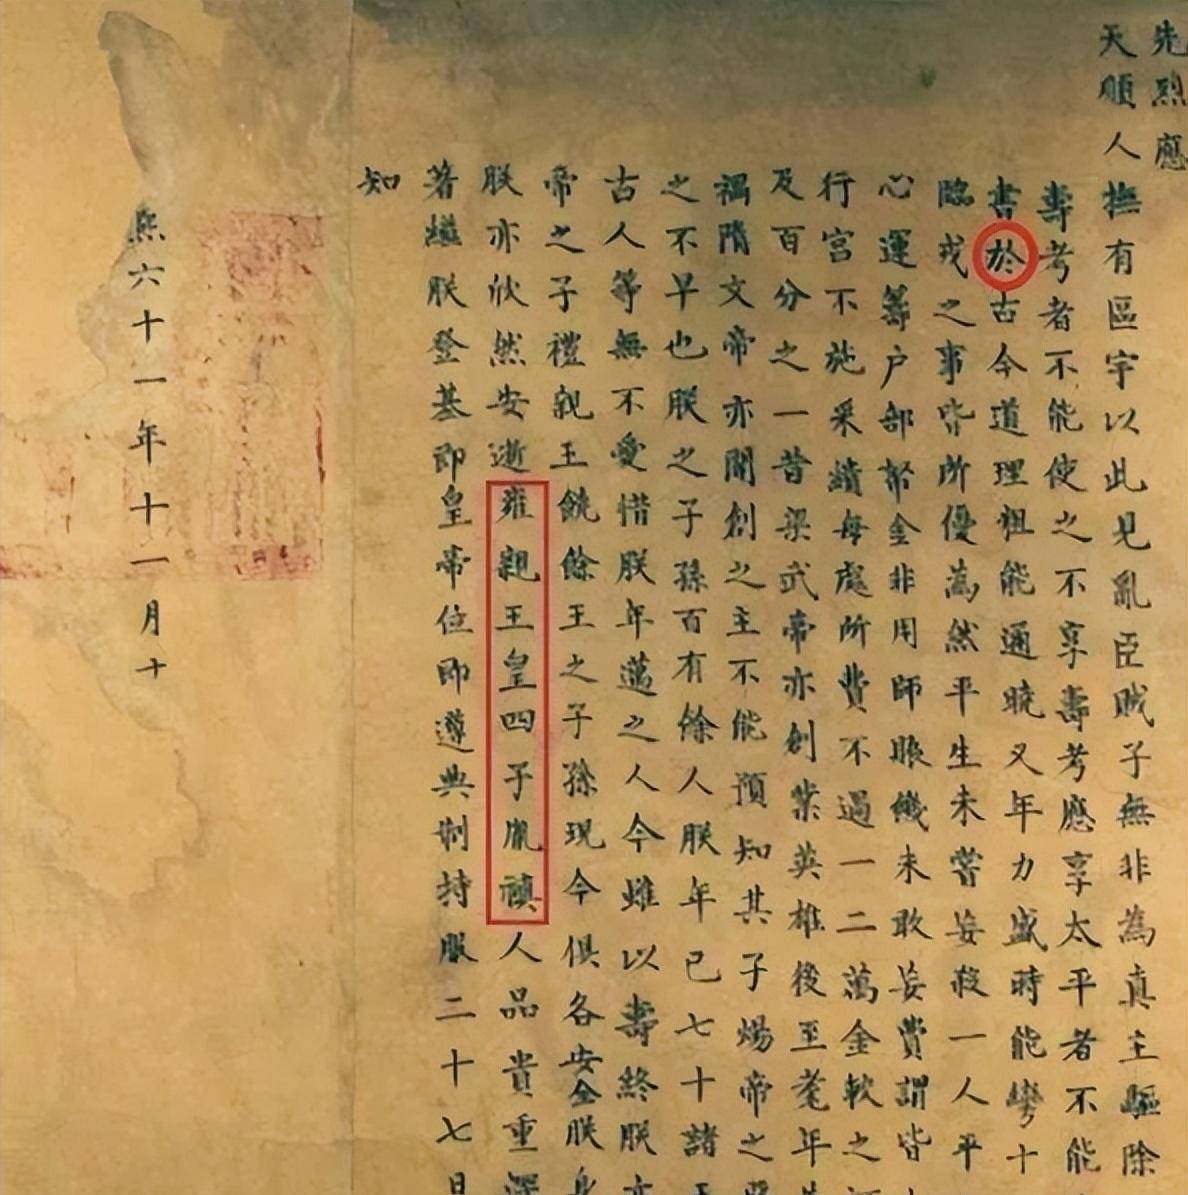 先烈應
天順人撫有區宇以此見亂臣賊子無非為真主驅除
壽考者不能使之不享壽考應享太平者不能
書於古今道理粗能通曉又年力盛時能彎十
臨戎之事皆所優為然平生未嘗妄殺一人平
心運籌户部帑金非用師賑饑未敢妄費謂皆
行宮不施采繢每處所費不過一二萬金較之
及百分之一昔梁武帝亦創業英雄後至耄年
禍隋文帝亦開創之主不能預知其子煬帝之
之不早也朕之子孫百有餘人朕年已七十諸
古人等無不愛惜朕年邁之人今雖以壽終朕亦
帝之子禮親王饒餘王之子孫現今俱各安全朕身
朕亦欣然安逝雍親王皇四子胤禛人品貴重深
著繼朕登基即皇帝位即遵典制持服二十七日
知
熙六十一年十一月十